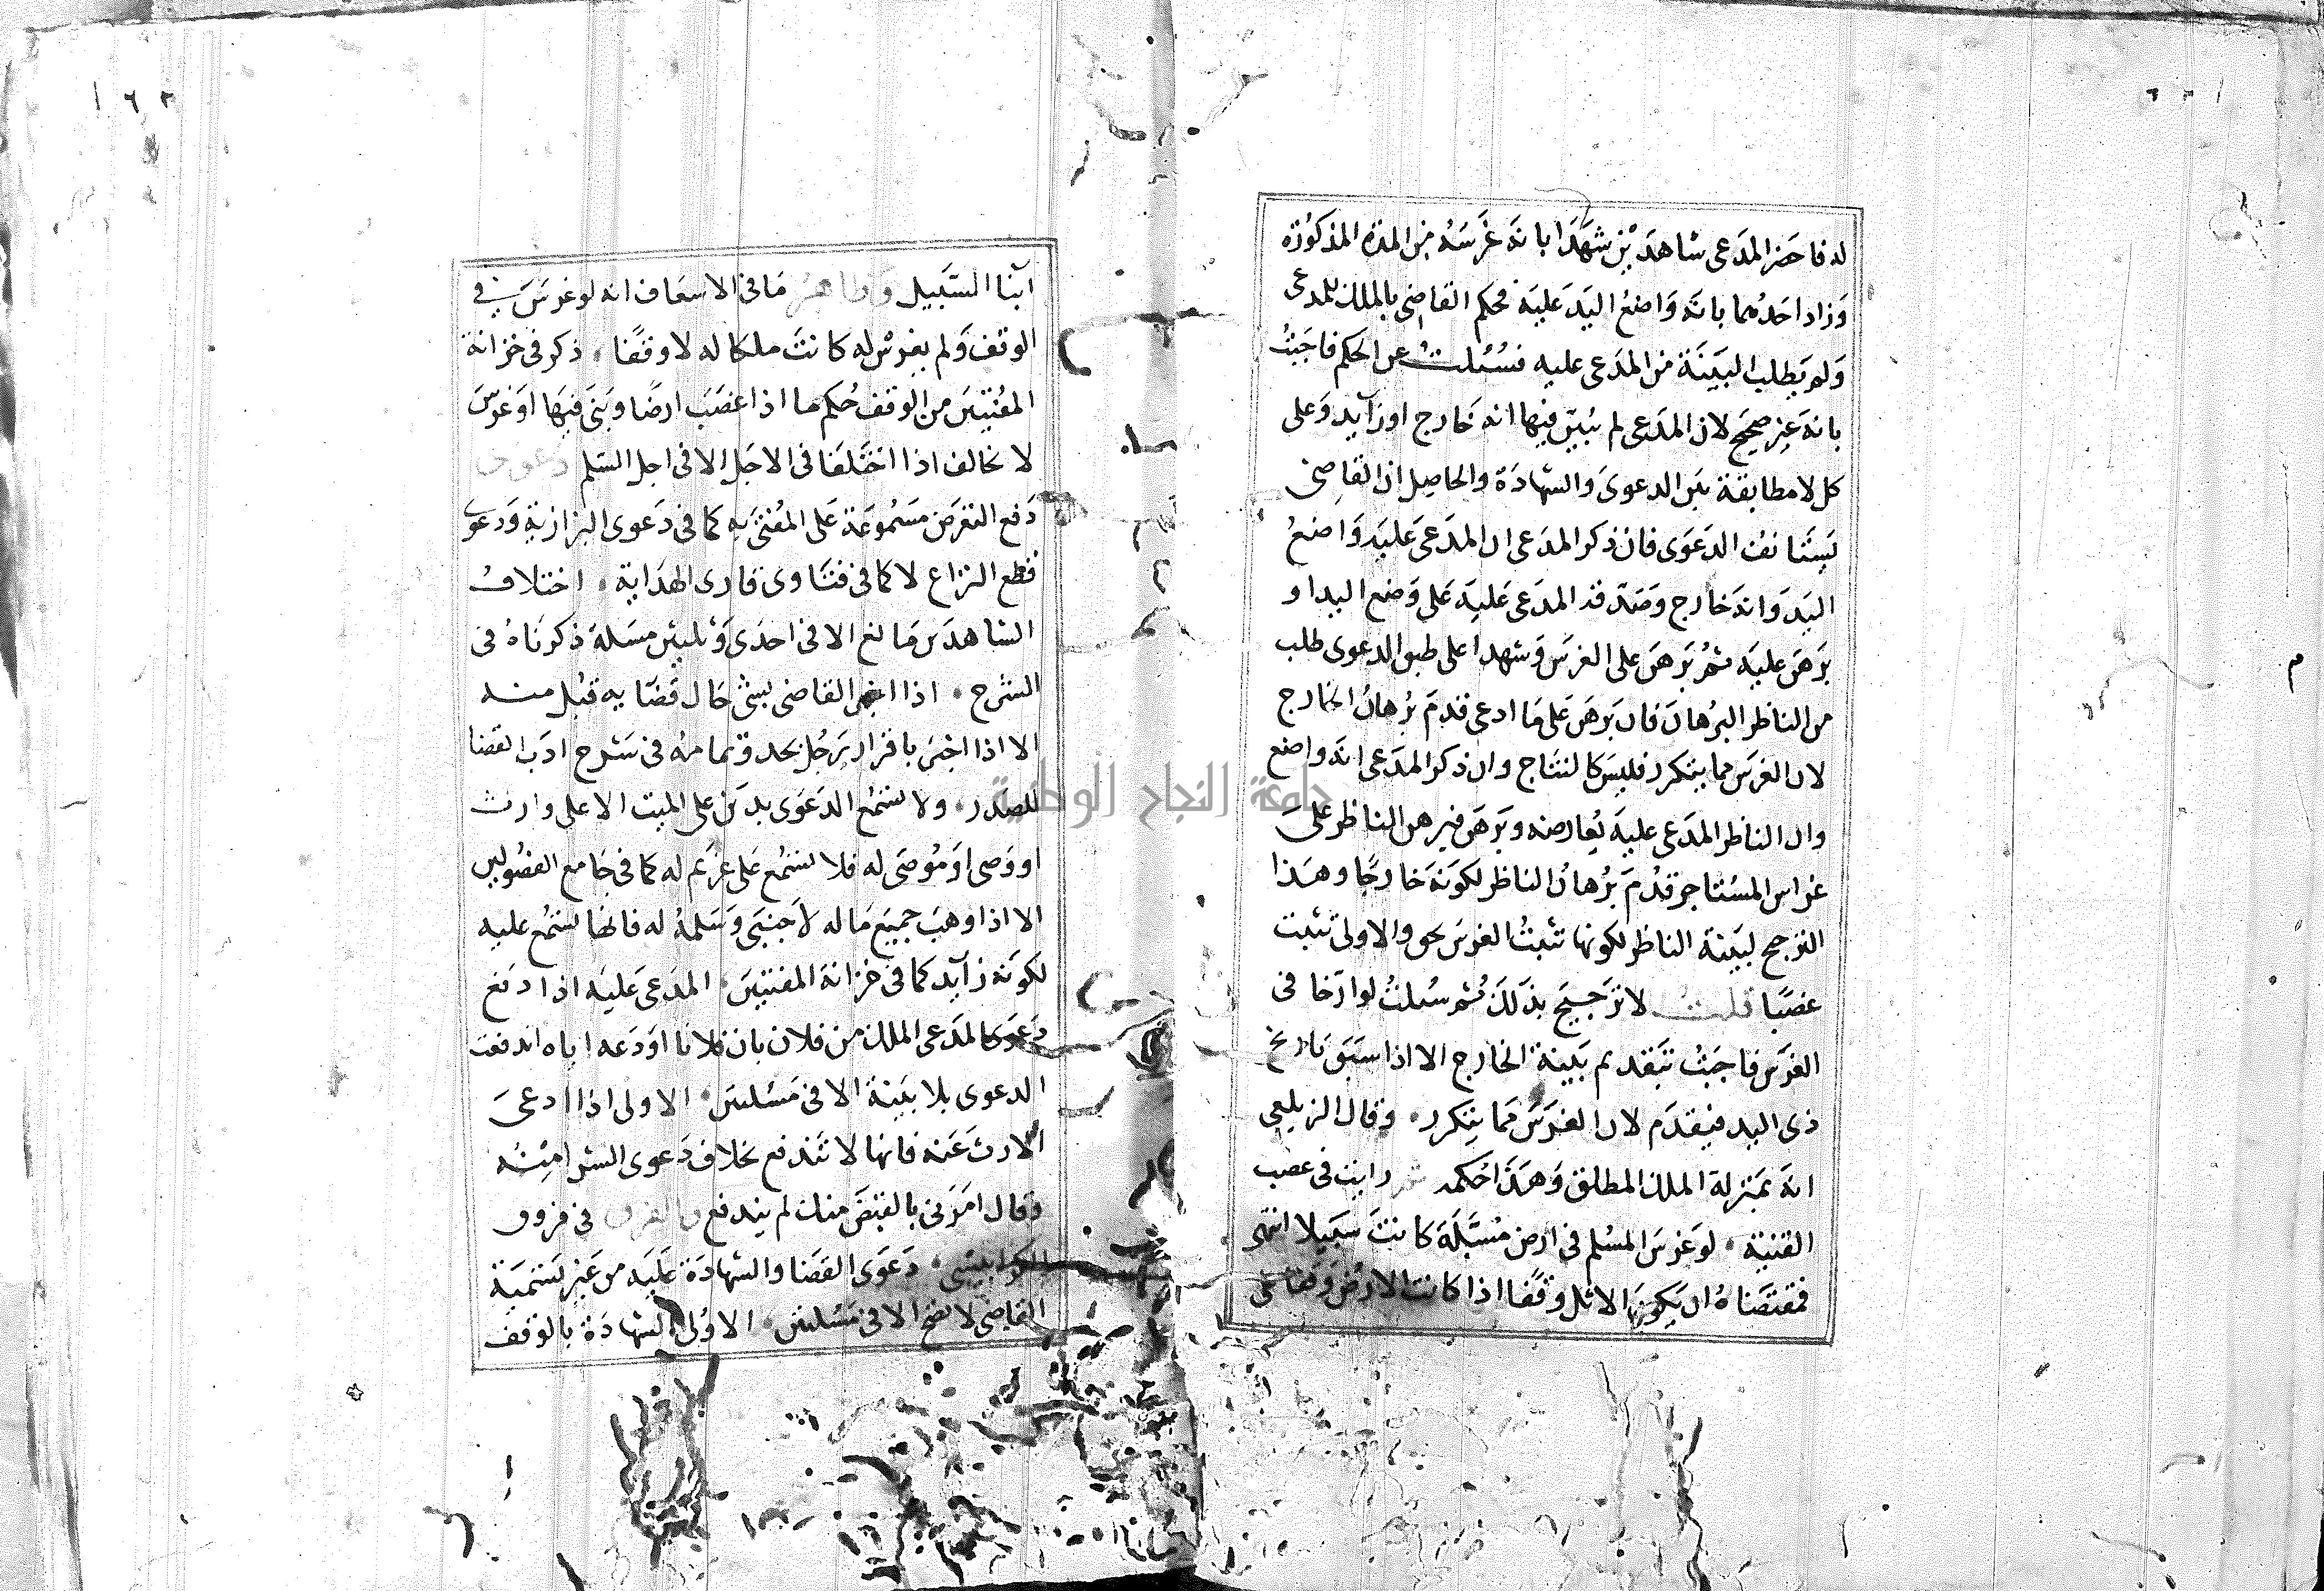 له فاحضر المدعى شاهدين شهدا بانه غرسه من المدة المذكورة
وزاد احدهما بانه واضع اليد عليه فحكم القاضى بالملك للمدعى
ولم يطلب البينة من المدعى عليه فسئلت عن الحكم فاجبت
بانه غير صحيح لان المدعى لم يبين فيها انه خارج اوزايد وعلى
كل لا مطابقة بين الدعوى والشهادة والحاصل ان القاضى
يستانف الدعوى فان ذكر المدعى ان المدعى عليه واضع
اليد وانه خارج وصدقه المدعى عليه على وضع اليد او
برهن عليه ثم برهن على الغرس وشهدا على طبق الدعوى طلب
من الناظر البرهان فان برهن على ما ادعى قدم برهان الخارج
لان الغرس مما يتكرر فليس كالنتاج وان ذكر المدعى انه واضع
وان الناظر المدعى عليه يعارضه وبرهن فبرهن الناظر على
غراس المستاجر قدم برهان الناظر لكونه خارجا وهذا
الترجح لبينة الناظر لكونها تثبت الغرس بحق والاولى تثبت
غصبا قلت لا ترجيح بذلك ثم سئلت لو ارخا فى
الغرس فاجبت بتقديم بينة الخارج الا اذا سبق تاريخ
ذى اليد فيقدم لان الغرس مما يتكرر وقال الزيلعى
انه بمنزلة الملك المطلق وهذا حكمه ثم رايت فى غصب
القنية لو غرس المسلم فى ارض مسبلة كانت سبيلا انتهى
فمقتضاه ان يكون الاثل وقفا اذا كانت الارض وقفا على
١٦٢
ابنا السبيل وظاهر ما فى الاسعاف انه لو غرس فى
الوقف ولم يغرس له كانت ملكا له لا وقفا ذكر فى خزانة
المفتيين من الوقف حكم ما اذا غصب ارضا وبنى فيها اوغرس
لا تحالف اذا اختلفا فى الاجل الا فى اجل السلم دعوى
دفع التعرض مسموعة على المفتى به كما فى دعوى البزازية ودعوى
قطع النزاع لا كما فى فتاوى قارى الهداية اختلاف
الشاهدين مانع الا فى احدى وثلثين مسئلة ذكرناه فى
الشرح اذا اخبر القاضى بشئ حال قضايه قبل منه
الا اذا اخبر باقرار رجل بحد وتمامه فى شرح ادب القضا
للصدر ولا تسمع الدعوى بدين على الميت الا على وارث
او وصى او موصى له فلا تسمع على غريم له كما فى جامع الفصولين
الا اذا وهب جميع ماله لاجنبى وسلمه له فانها تسمع عليه
لكونه زايد كما فى خزانة المفتيين المدعى عليه اذا دفع
دعوى المدعى الملك من فلان بان فلانا اودعه اياه اندفعت
الدعوى بلا بينة الا فى مسئلتين الاولى اذا ادعى
الارث عنه فانها لا تندفع بخلاف دعوى الشرا منه
وقال امرنى بالقبض منك لم يندفع والفرق فى فروق
الكرابيسى دعوى القضا والشهادة عليه من غير تسمية
القاضى لا تصح الا فى مسئلتين الاولى الشهادة بالوقف
جامعة النجاح الوطنية